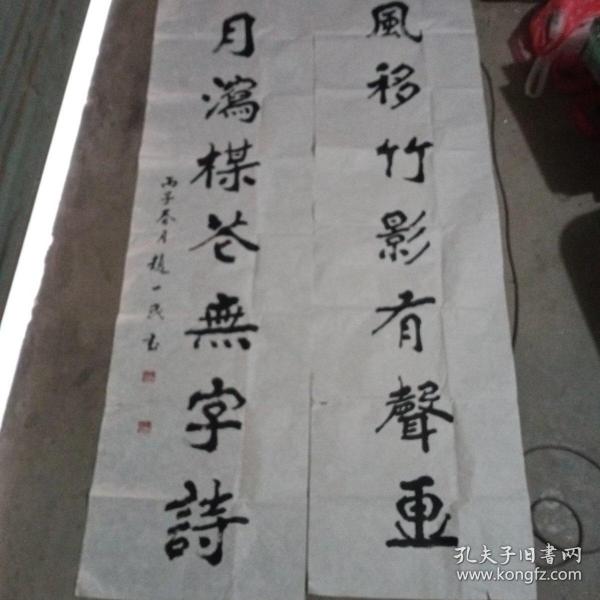 風移竹影有聲画
月瀉楳花無字詩
丙子春月趙一民书
孔夫子旧书网
www.kongfz.com